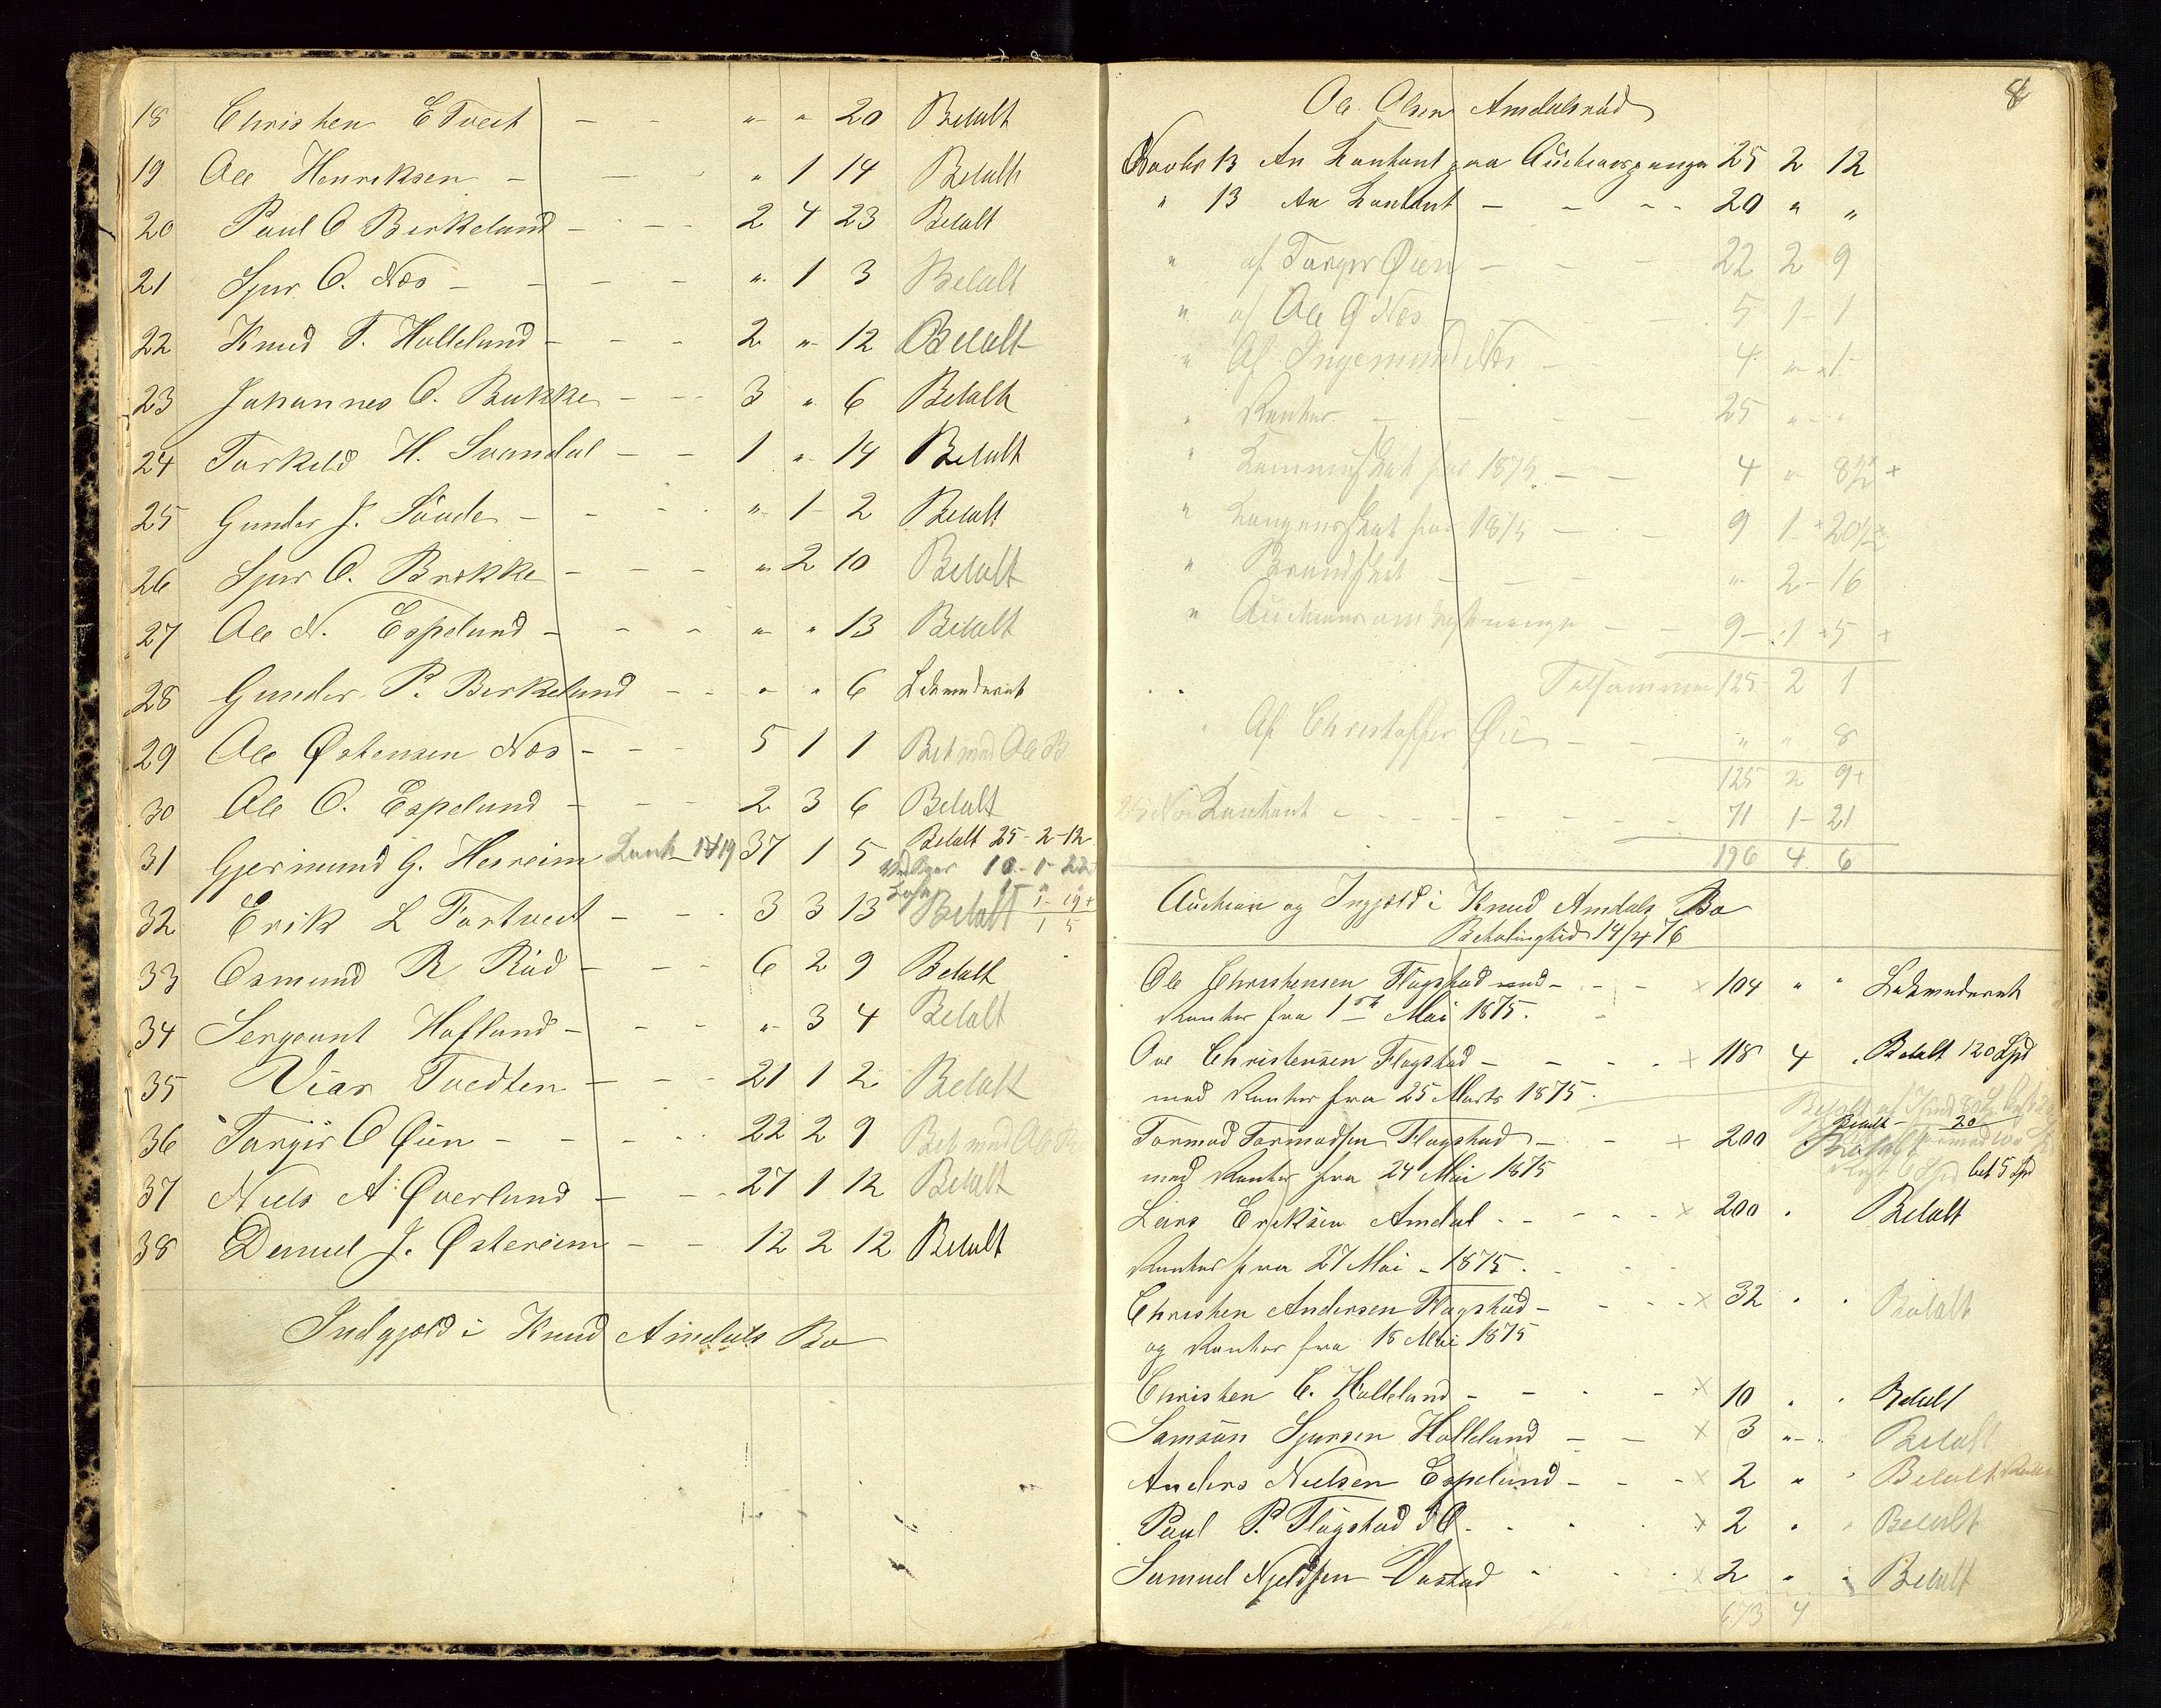 18 Christen E Tveit - - " " 20 Betalt
19 Ole Henriksen - - " 1 14 Betalt
20 Paul O Birkeland - - - 2 4 23 Betalt
21 Sjur O. Næs - - - - " 1 3 Betalt
22 Knud T. Halleland - - - 2 " 12 Betalt
23 Johannes O. Bakke - - - 3 " 6 Betalt
24 Torkeld H. Svandal - - 1 " 14 Betalt
25 Gunder J. - - - " 1 2 Betalt
26 Sjur O. Brekke - - - " 2 10 Betalt
27 Ole N. Espeland - - - " " 13 Betalt
28 Gunder P. Birkeland - - " " 6
29 Ole Østensen Næs - - - 5 1 1 Bet med Ole
30 Ole O. Espeland - - - 2 3 6 Betalt
31 Gjermund G. Hesreim 37 1 5 Betalt 25-2-12
32 Erik L Tortveit - - - 3 3 13 Betalt
33 Osmund R Rød - - - 6 2 9 Betalt
34 Sergeant Hafland - - - " 3 4 Betalt
35 Viar Tvedten - - - 21 1 2 Betalt
36 Torgir O Øien - - - 22 2 9 Bet med Ole
37 Niels A Øverland - - - 27 1 12 Betalt
38 Daniel J. Østereim - - 12 2 12 Betalt
Indgjeld i Knud Amdals Bo
8
Ole Olsen Amdalsrød
Novbr 13 An Kontant paa Auctionspenge 25 2 12
" 13 An Kontant - - - - 20 " "
" af Torger Øien - - - 22 2 9
" af Ole Ø Næs 5 1 1
" Af Ingemund Næs - 4 " 1
" Renter - - - - 25 " "
" Kommuneskat for 1875 - - 4 " 8½ +
" for 1875 - - 9 1 20½
" Brandskat - - - " 2 16
" - - 9 1 5 +
Tilsammen 125 2 1
" Af Christoffer Øie - - " " 8
125 2 9+
Kontant - - - - 71 1 21
196 4 6
Auction og Ingjeld i Knud Amdals Bo
Betalingtid 14/4 76
Ole Christensen Flagstad med - - - × 104 " "
Renter fra 1ste Mai 1875.
Ove Christensen Flagstad - - - × 118 4 . Betalt 120 Spd
med Renter fra 25 Marts 1875.
Tormod Tormodsen Flagstad - - × 200 Betalt - 20
med Renter fra 24 Mai 1875 bet 5 Spd
Lars Eriksen Amdal - - - - × 200 . Betalt
Renter fra 27 Mai - 1875.
Christen Andersen Flagstad - - - × 32 . . Betalt
og Renter fra 18 Mai 1875
Christen E. Halleland - - - × 10 . . Betalt
Samson Sjursen Halleland - - × 3 " " Betalt
Anders Nielsen Espeland - - - × 2 " " Betalt
Paul P. Flagstad - - - × 2 " " Betalt
Samuel Njeldsen - - × 2 " " Betalt
673 4